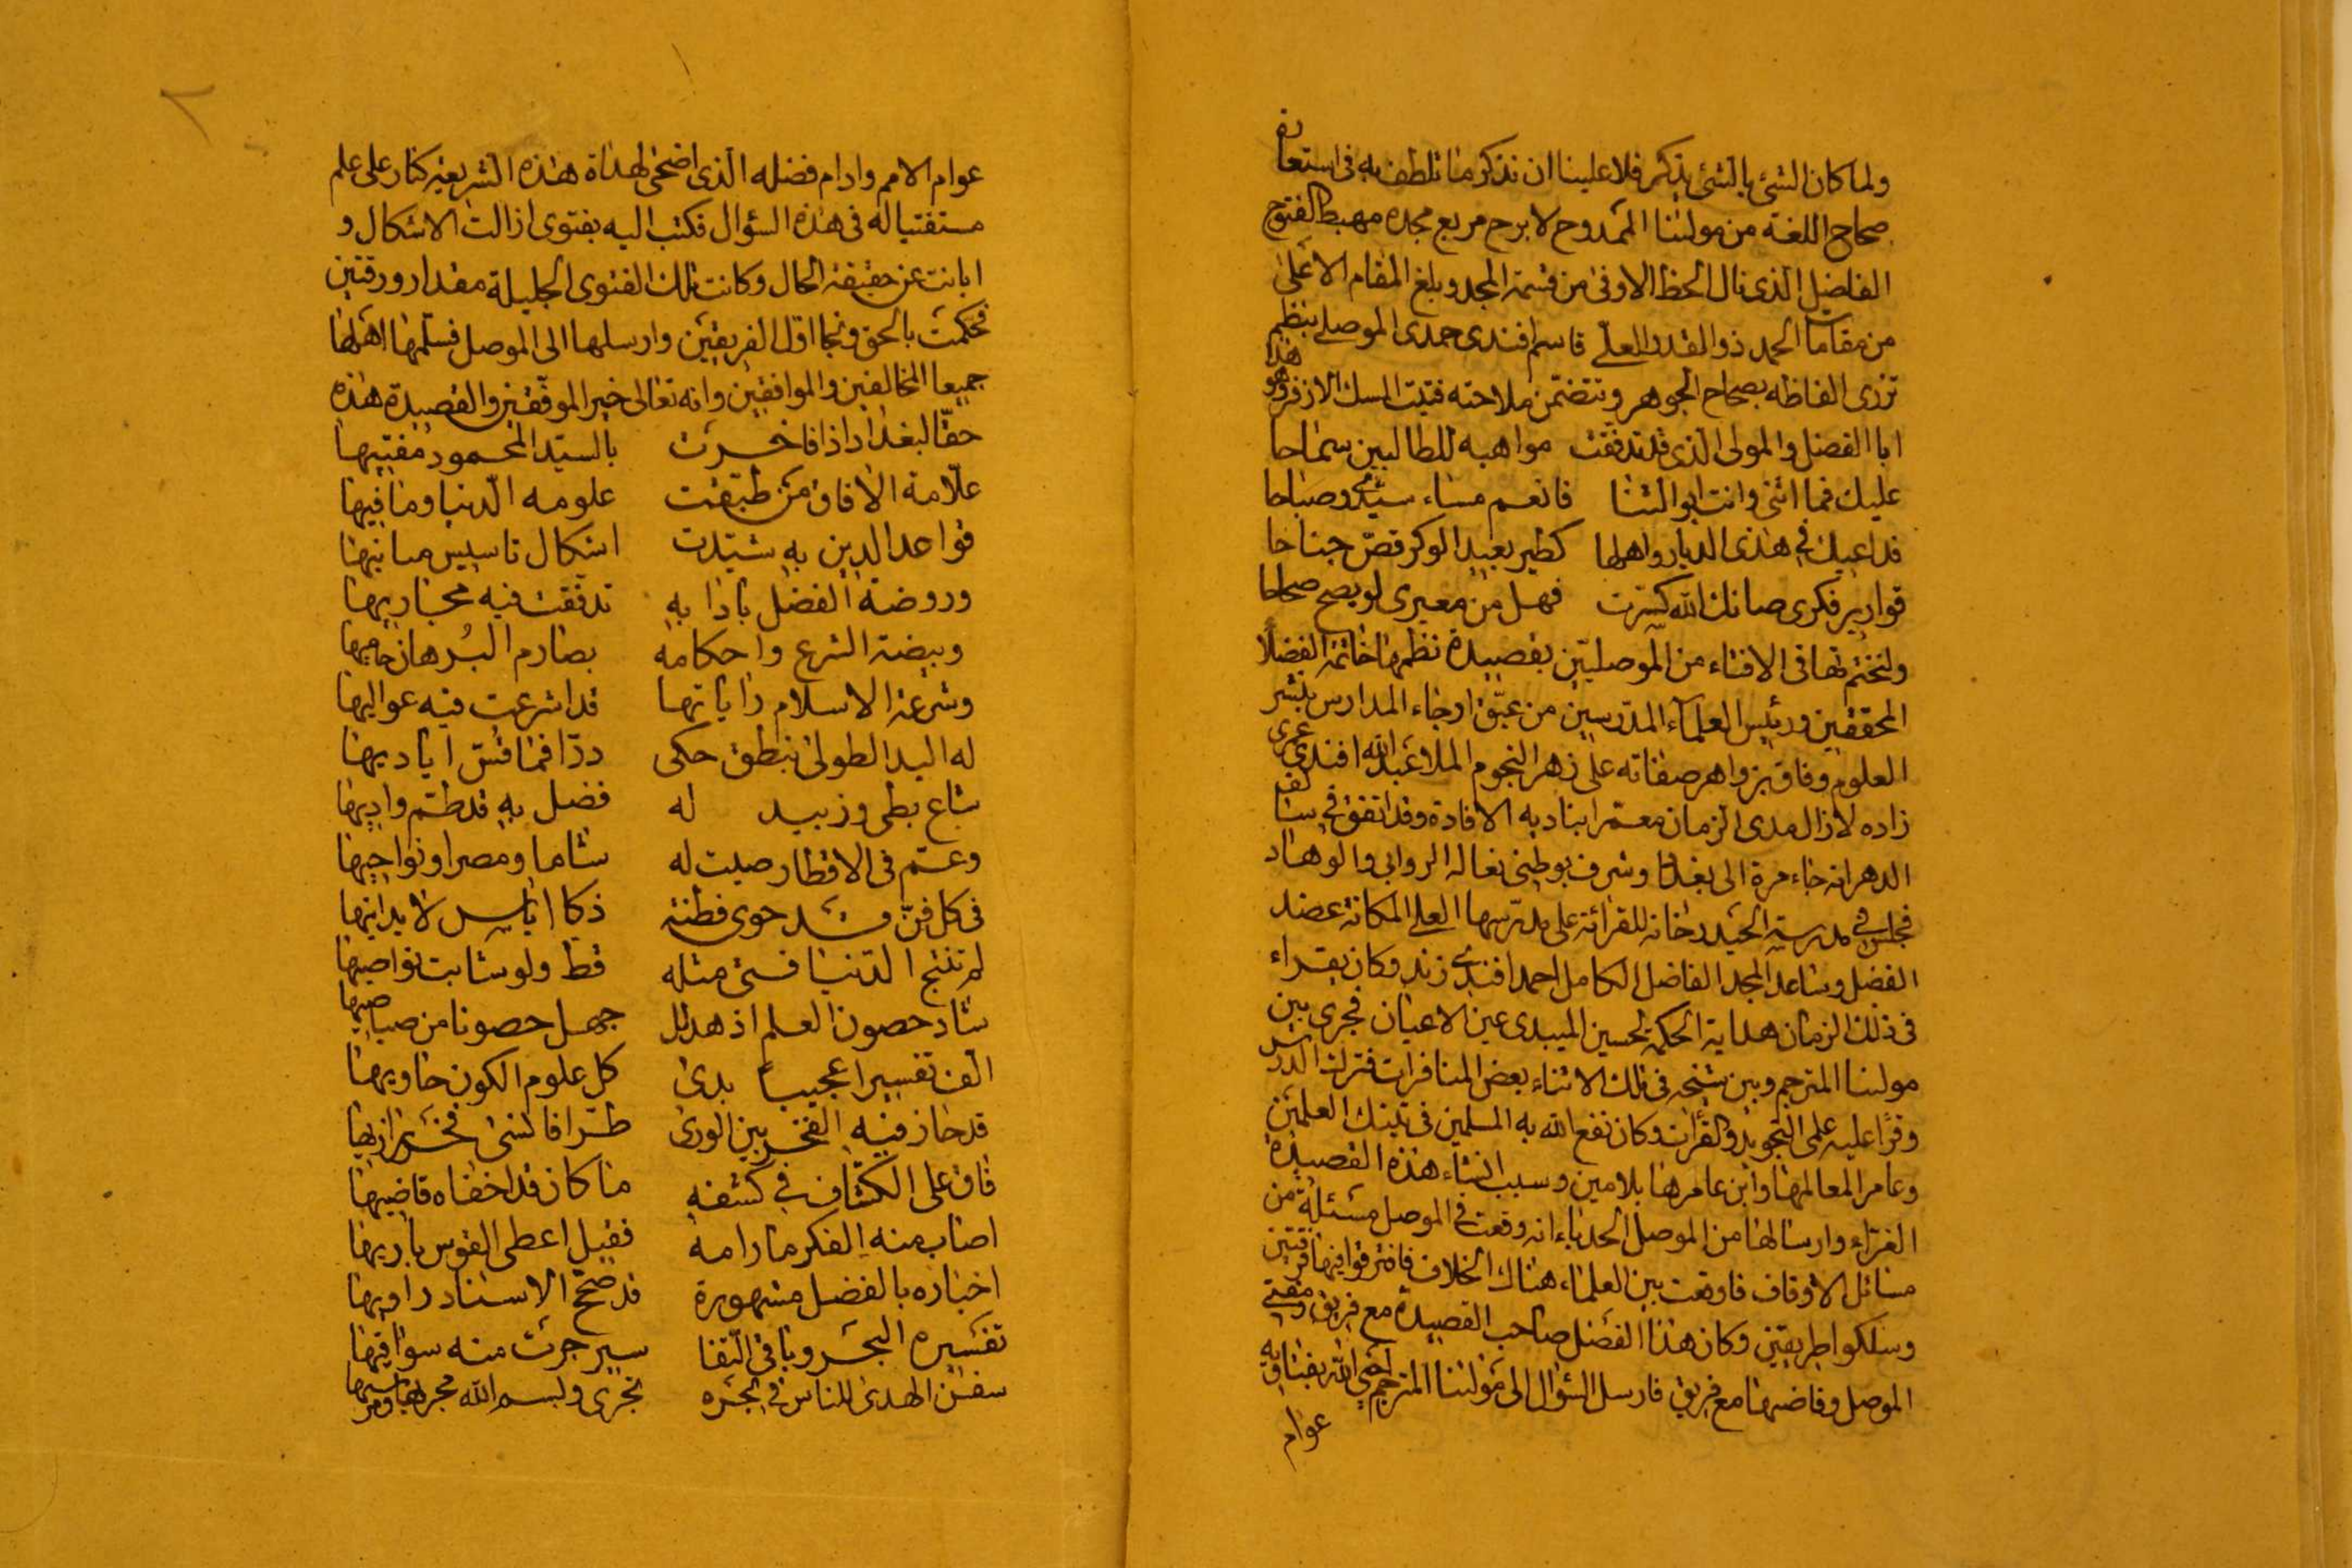 ولما كان الشئ بالشئ يذكر فلا علينا ان نذكر ما تلطف به فى استعارة
صحاح اللغة من مولانا الممدوح لا برح مربع مجده مهبط الفتوح
الفاضل الذى نال الحظ الاوفى من قسمة المجد وبلغ المقام الاعلى
من مقامات الحمد ذو القدر العلى قاسم افندى حمدى الموصلى بنظم
تزرى الفاظه بصحاح الجوهر وتتضمن ملاحته فتيت المسك الاذفر وهو هذا
ابا الفضل والمولى الذى قد تدفقت مواهبه للطالبين سماحا
عليك فما اثنى وانت ابو الثنا فانعم مساء سيدى وصباحا
فداعيك فى هذى الديار واهلها كطير بعيد الوكر قص جناحا
قوارير فكرى صانك الله كسرت فهل من معيرى لو يصح صحاحا
ولنختم ثمافى الافتاء من الموصليين بقصيدة نظمها خاتمة الفضلاء
المحققين ورئيس العلماء المدرسين من عبق ارجاء المدارس بنشر
العلوم وفاق بزواهر صفاته على زهر النجوم الملا عبد الله افندى عمرى
زاده لا زال مدى الزمان معمرا بناديه الافادة وقد اتفق فى سالف
الدهر انه جاء مرة الى بغداد وشرف بوطئ نعاله الروابى والوهاد
فجلس فى مدرسة الحيدرخانه للقرائة على مدرسها العلى المكانة عضد
الفضل وساعد المجد الفاضل الكامل احمد افندى زند وكان يقراء
فى ذلك الزمان هداية الحكمة لحسين الميبدى عين الاعيان فجرى بين
مولانا المترجم وبين شيخه فى تلك الاثناء بعض المنافرات فترك الدرس
وقرا عليه علمى التجويد والقرات وكان نفع الله به المسلمين فى تينك العلمين
وعامر المعالمها وابن عامرها بلا مين وسبب انشاء هذه القصيدة
الغراء وارسالها من الموصل الحدباء انه وقعت فى الموصل مسئلة من
مسائل الاوقاف فاوقعت بين العلماء هناك الخلاف فافترقوا فيها فرقتين
وسلكوا طريقين وكان هذا الفضل صاحب القصيدة مع فريق ومفتى
الموصل وقاضيها مع فريق فارسل السؤال الى مولانا المترجم احيى الله بفتاويه
عوام
عوام الامم وادام فضله الذى اضحى لهداة هذه الشريعة كنار على علم
مستفتيا له فى هذه السؤال فكتب اليه بفتوى ازالت الاشكال و
ابانت عن حقيقة الحال وكانت تلك الفتوى الجليلة مقدار ورقتين
فحكمت بالحق ونجا اول الفريقين وارسلها الى الموصل فسلمها اهلها
جميعا المخالفين والموافقين وانه تعالى خير الموفقين والقصيدة هذه
حقا لبغداد اذا فاخرت بالسيد المحمود مفتيها
علامة الافاق من طبقت علومه الدنيا وما فيها
قواعد الدين به شيدت اشكال تاسيس مبانيها
وروضة الفضل بادابه تدفقت فيه مجاريها
وبيضة الشرع واحكامه بصارم البرهان حاميها
وشرعة الاسلام راياتها قد اشرعت فيه عواليها
له اليد الطولى بنطق حكى دررا فما قس اياديها
شاع بطى وزبيد له فضل به قد طم واديها
وعم فى الاقطار صيت له شاما ومصرا ونواحيها
فى كل فن قد حوى فطنة ذكا اياس لا يدانيها
لم تنتج الدنيا فتى مثله قط ولو شابت نواصيها
شاد حصون العلم اذ هد لل جهل حصونا من صياصيها
الف تفسيرا عجيبا بدى كل علوم الكون حاويها
قد حاز فيه الفخر بين الورى طرا فانسى فخر رازيها
فاق على الكشاف فى كشفه ما كان قد اخفاه قاضيها
اصاب منه الفكر ما رامه فقيل اعطى القوس باريها
اخباره بالفضل مشهورة قد صحح الاسناد راويها
تفسيره البحر وباقى النقا سير جرت منه سواقيها
سفن الهدى للناس فى بحره تجرى وبسم الله مجريها ومرسيها